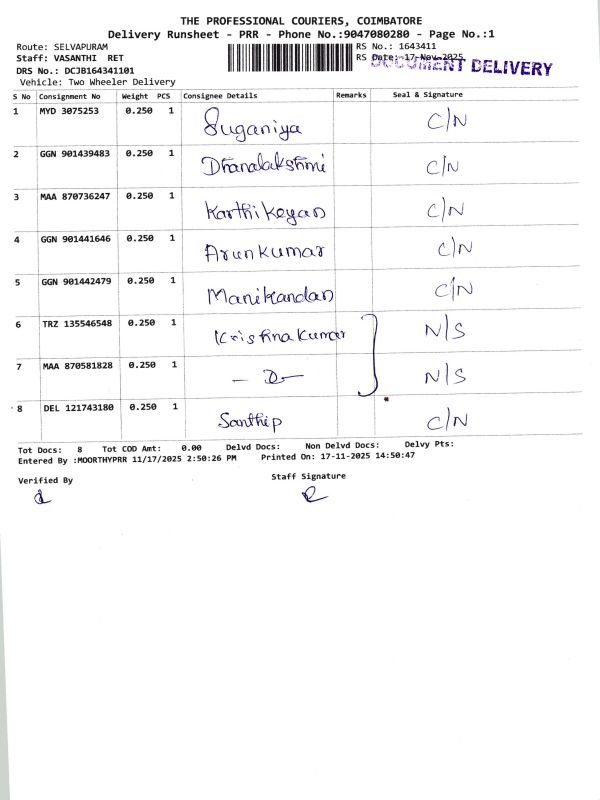 THE PROFESSIONAL COURIERS, COIMBATORE
Delivery Runsheet - PRR - Phone No.:9047080280 - Page No.:1
Route: SELVAPURAM RS No.: 1643411
Staff: VASANTHI RET RS Date: 17-Nov-2025
DOCUMENT DELIVERY
DRS No.: DCJB164341101
Vehicle: Two Wheeler Delivery
S No Consignment No Weight PCS Consignee Details Remarks Seal & Signature
1 MYD 3075253 0.250 1 Suganiya C/N
2 GGN 901439483 0.250 1 Dhanalakshmi C/N
3 MAA 870736247 0.250 1 Karthikeyan C/N
4 GGN 901441646 0.250 1 Arunkumar C/N
5 GGN 901442479 0.250 1 Manikandan C/N
6 TRZ 135546548 0.250 1 Krishnakumar N/S
7 MAA 870581828 0.250 1 N/S
8 DEL 121743180 0.250 1 Santhip C/N
Tot Docs: 8 Tot COD Amt: 0.00 Delvd Docs: Non Delvd Docs: Delvy Pts:
Entered By :MOORTHYPRR 11/17/2025 2:50:26 PM Printed On: 17-11-2025 14:50:47
Verified By Staff Signature